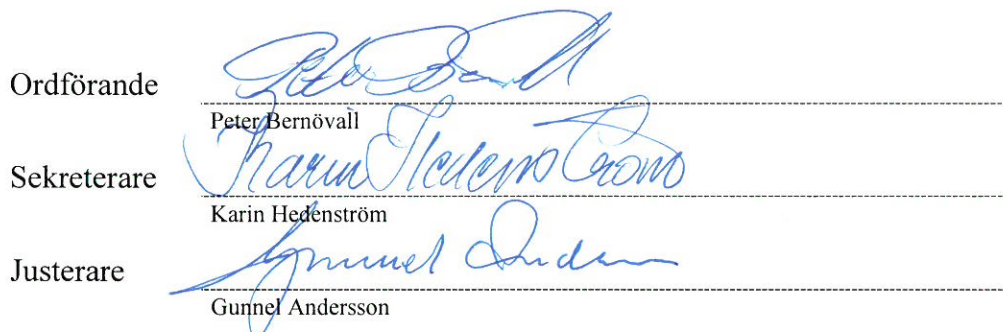 Ordförande
Peter Bernövall
Sekreterare Karin Hedenström
Karin Hedenström
Justerare Gunnel Andersson
Gunnel Andersson